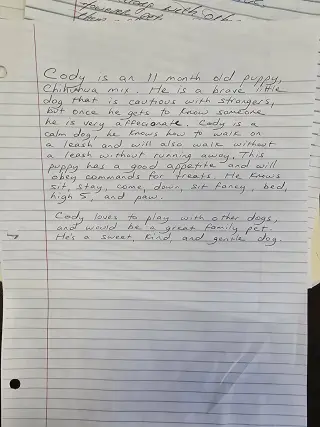 with oth
Cody is an 11 month old puppy,
Chihuhua mix. He is a brave little
dog that is cautious with strangers,
but once he gets to know someone
he is very affecionate. Cody is a
calm dog, he knows how to walk on
a leash and will also walk without
a leash without running away. This
puppy has a good appetite and will
obey commands for treats. He knows
sit, stay, come, down, sit fancy, bed,
high 5, and paw.
Cody loves to play with other dogs,
and would be a great family pet.
He's a sweet, kind, and gentle dog.